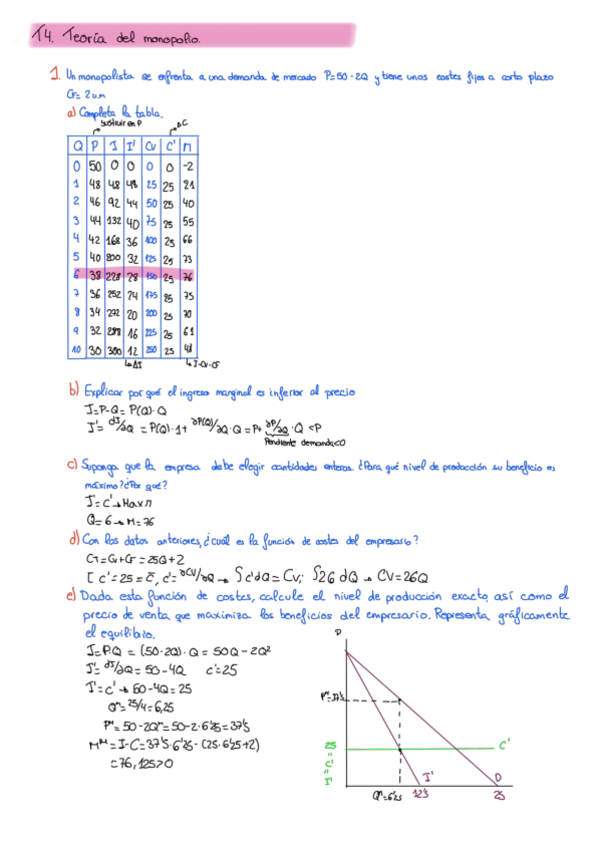 T4. Teoría del monopolio.
1. Un monopolista se enfrenta a una demanda de mercado P=50-2Q y tiene unos costes fijos a corto plazo
CF= 2 u.m
a) Completa la tabla.
Sustituir en P
ΔC
Q P I I' CV C' π
0 50 0 0 0 0 -2
1 48 48 48 25 25 21
2 46 92 44 50 25 40
3 44 132 40 75 25 55
4 42 168 36 100 25 66
5 40 200 32 125 25 73
6 38 228 28 150 25 76
7 36 252 24 175 25 75
8 34 272 20 200 25 70
9 32 288 16 225 25 61
10 30 300 12 250 25 48
↳ΔI ↳I-CV-CF
b) Explicar por qué el ingreso marginal es inferior al precio
I=P·Q= P(Q)·Q
I'= ∂I/∂Q = P(Q)·1+ ∂P(Q)/∂Q·Q = P+ ∂P/∂Q·Q <P
Pendiente demanda<0
c) Suponga que la empresa debe elegir cantidades enteras. ¿Para qué nivel de producción su beneficio es
máximo? ¿Por qué?
I'= C' → Max π
Q=6 → π=76
d) Con los datos anteriores, ¿cuál es la función de costes del empresario?
CT=CV+CF = 25Q+2
[ C'=25 = c̄, C'= ∂CV/∂Q → ∫C'dQ = CV; ∫26 dQ → CV=26Q
e) Dada esta función de costes, calcule el nivel de producción exacto, así como el
precio de venta que maximiza los beneficios del empresario. Representa gráficamente
el equilibrio.
I=P.Q = (50-2Q)·Q = 50Q - 2Q²
I'= ∂I/∂Q = 50-4Q C'=25
I'=C' → 50-4Q=25
Qᵐ=25/4=6,25
Pᵐ=50-2Qᵐ=50-2·6'25=37'5
πᴹ=I-C=37'5·6'25-(25·6'25+2)
=76,125>0
P
Pᴹ=37'5
25
I'=C'
C'
I'
D
Qᴹ=6'25 12'5 25